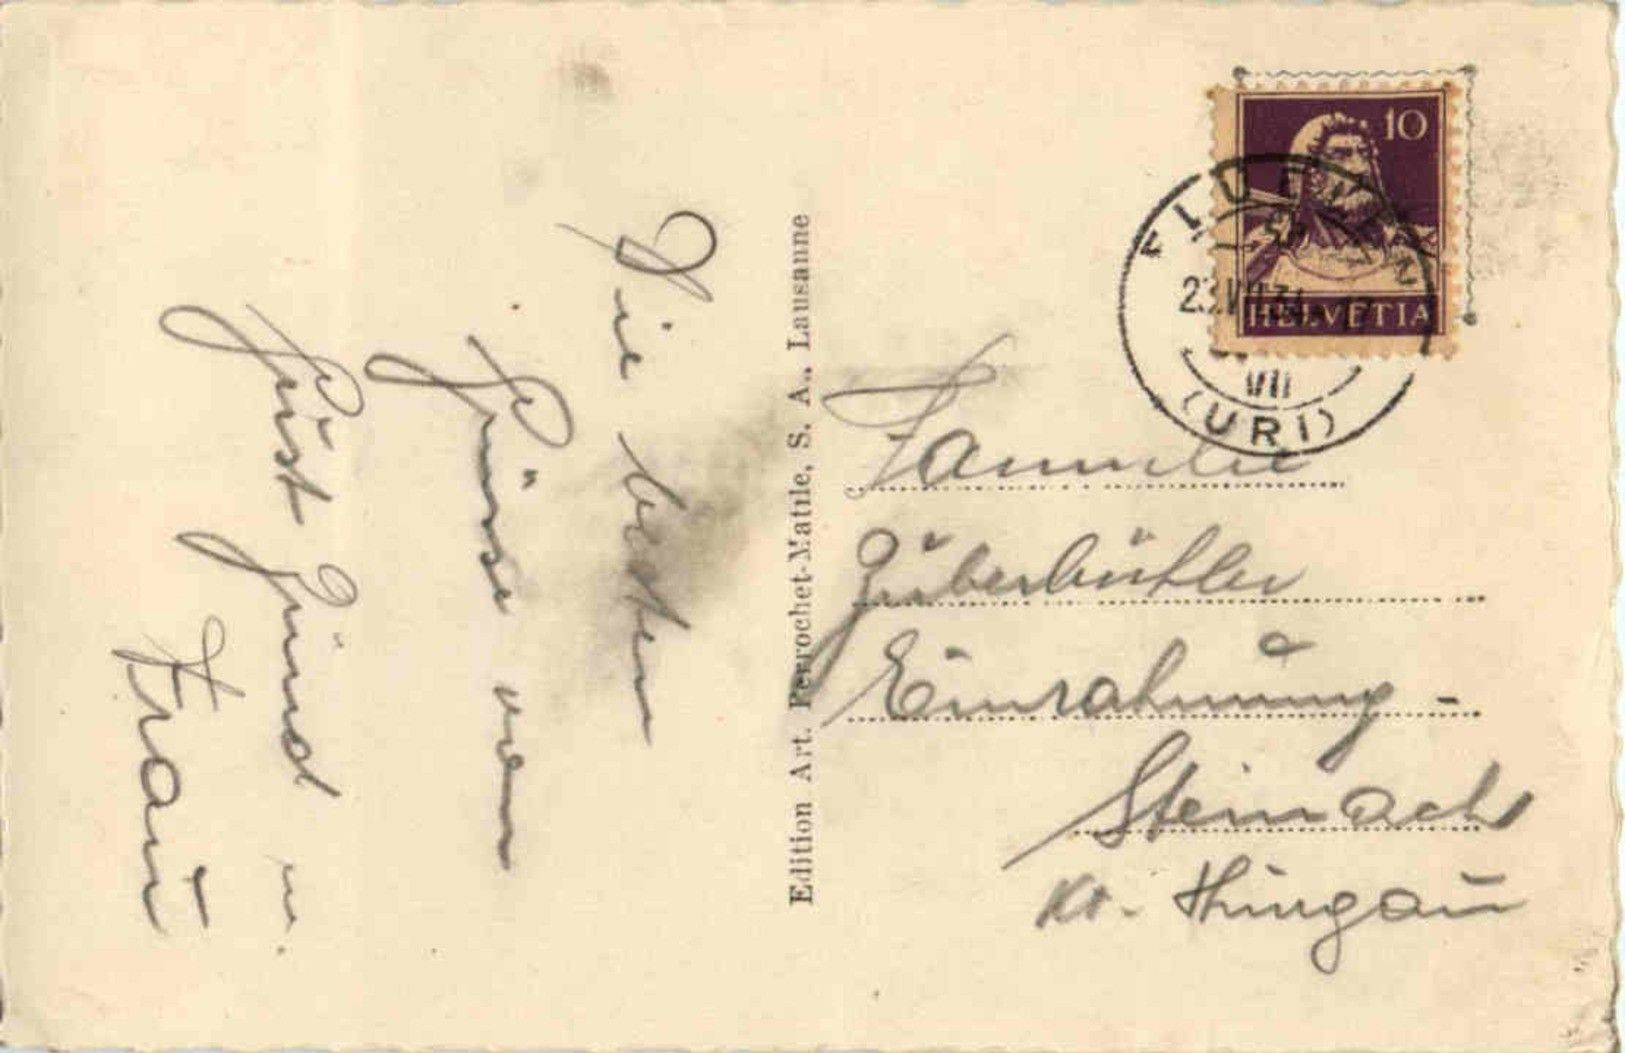 Die besten
Grüsse von
Gust Zünd u.
Frau
Edition Art. Perrochet-Matile, S. A., Lausanne
10
HELVETIA
FLÜELEN
VII
(URI)
Familie
Zuberbühler
Einrahmung -
Steinach
Kt. Thurgau